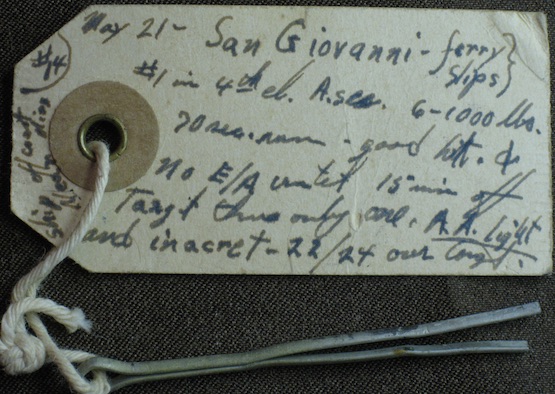 #14
May 21 - San Giovanni - ferry
slips}
#1 in 4th el. A.sec. 6-1000 lbs.
70 sec. run - good hit. &
No E/A until 15 min off
Targt then only one. A.A. light
and inacret - 22/24 over targt.
ship off coast